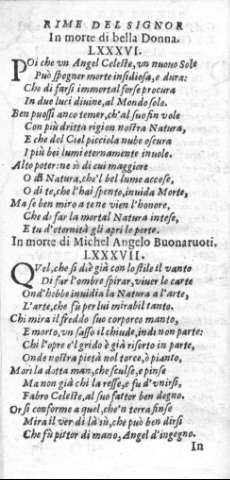 RIME DEL SIGNOR
In morte di bella Donna.
LXXXVI.
POi che vn Angel Celeste, vn nuouo Sole
Può spegner morte insidiosa, e dura:
Che di farsi immortal forse procura
In due luci diuine, al Mondo sole.
Ben puossi anco temer, ch'al suo fin vole
Con più dritta rigion nostra Natura,
E che del Ciel picciola nube oscura
I più bei lumi eternamente inuole.
Alto poter: ne sò di cui maggiore
O di Natura, che'l bel lume accese,
O di te, che l'hai spento, inuida Morte,
Ma se ben miro a te ne vien l'honore,
Che di far la mortal Natura intese,
E tu d'eternità gli apri le porte.
In morte di Michel Angelo Buonaruoti.
LXXXVII.
QVel, che si diè già con lo stile il vanto
Di far l'ombre spirar, viuer le carte
Ond'hebbe inuidia la Natura a l'arte,
L'arte, che fù per lui mirabil tanto.
Chi mira il freddo suo corporeo manto,
E morto, vn sasso il chiude, indi non parte:
Chi l'opre e'l grido è già risorto in parte,
Onde nostra pietà nol torce, ò pianto,
Morì la dotta man, che sculse, e pinse
Ma non già chi la resse, e fu d'vnirsi,
Fabro Celeste, al suo fattor ben degno.
Or sì conforme a quel, che'n terra finse
Mira il ver di là sù, che può ben dirsi
Che fù pittor di mano, Angel d'ingegno.
In